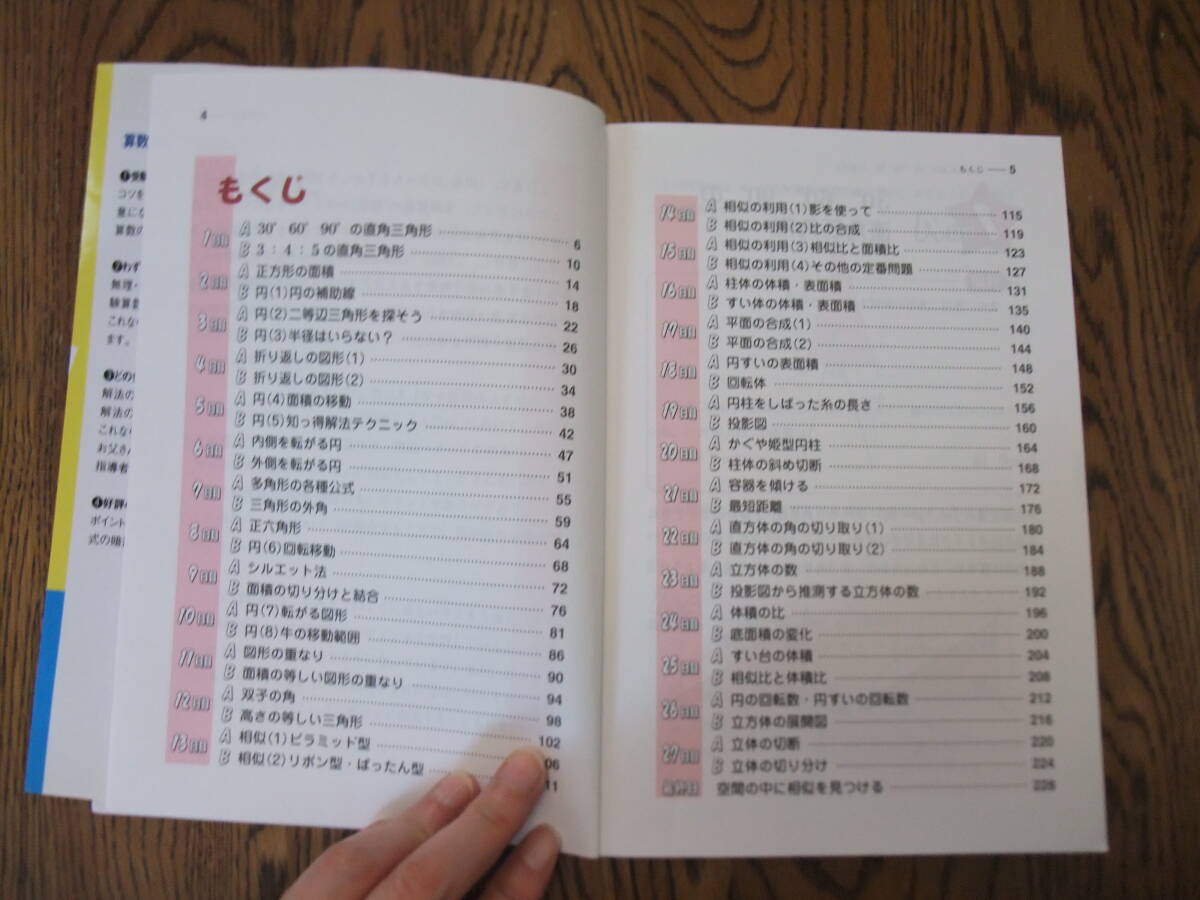 算数
❶受験
コツを
量にな
算数の
❷わず
無理・
験算数
これな
ます。
❸どの
解法の
解法の
これな
お父さん
指導者
❹好評
ポイント
式の暗
4
もくじ
1日目 A 30° 60° 90°の直角三角形 6
B 3:4:5の直角三角形 10
2日目 A 正方形の面積 14
B 円(1)円の補助線 18
3日目 A 円(2)二等辺三角形を探そう 22
B 円(3)半径はいらない? 26
4日目 A 折り返しの図形(1) 30
B 折り返しの図形(2) 34
5日目 A 円(4)面積の移動 38
B 円(5)知っ得解法テクニック 42
6日目 A 内側を転がる円 47
B 外側を転がる円 51
7日目 A 多角形の各種公式 55
B 三角形の外角 59
8日目 A 正六角形 64
B 円(6)回転移動 68
9日目 A シルエット法 72
B 面積の切り分けと結合 76
10日目 A 円(7)転がる図形 81
B 円(8)牛の移動範囲 86
11日目 A 図形の重なり 90
B 面積の等しい図形の重なり 94
12日目 A 双子の角 98
B 高さの等しい三角形 102
13日目 A 相似(1)ピラミッド型 06
B 相似(2)リボン型・ばったん型 11
もくじ — 5
14日目 A 相似の利用(1)影を使って 115
B 相似の利用(2)比の合成 119
15日目 A 相似の利用(3)相似比と面積比 123
B 相似の利用(4)その他の定番問題 127
16日目 A 柱体の体積・表面積 131
B すい体の体積・表面積 135
17日目 A 平面の合成(1) 140
B 平面の合成(2) 144
18日目 A 円すいの表面積 148
B 回転体 152
19日目 A 円柱をしばった糸の長さ 156
B 投影図 160
20日目 A かぐや姫型円柱 164
B 柱体の斜め切断 168
21日目 A 容器を傾ける 172
B 最短距離 176
22日目 A 直方体の角の切り取り(1) 180
B 直方体の角の切り取り(2) 184
23日目 A 立方体の数 188
B 投影図から推測する立方体の数 192
24日目 A 体積の比 196
B 底面積の変化 200
25日目 A すい台の体積 204
B 相似比と体積比 208
26日目 A 円の回転数・円すいの回転数 212
B 立方体の展開図 216
27日目 A 立体の切断 220
B 立体の切り分け 224
最終日 空間の中に相似を見つける 228